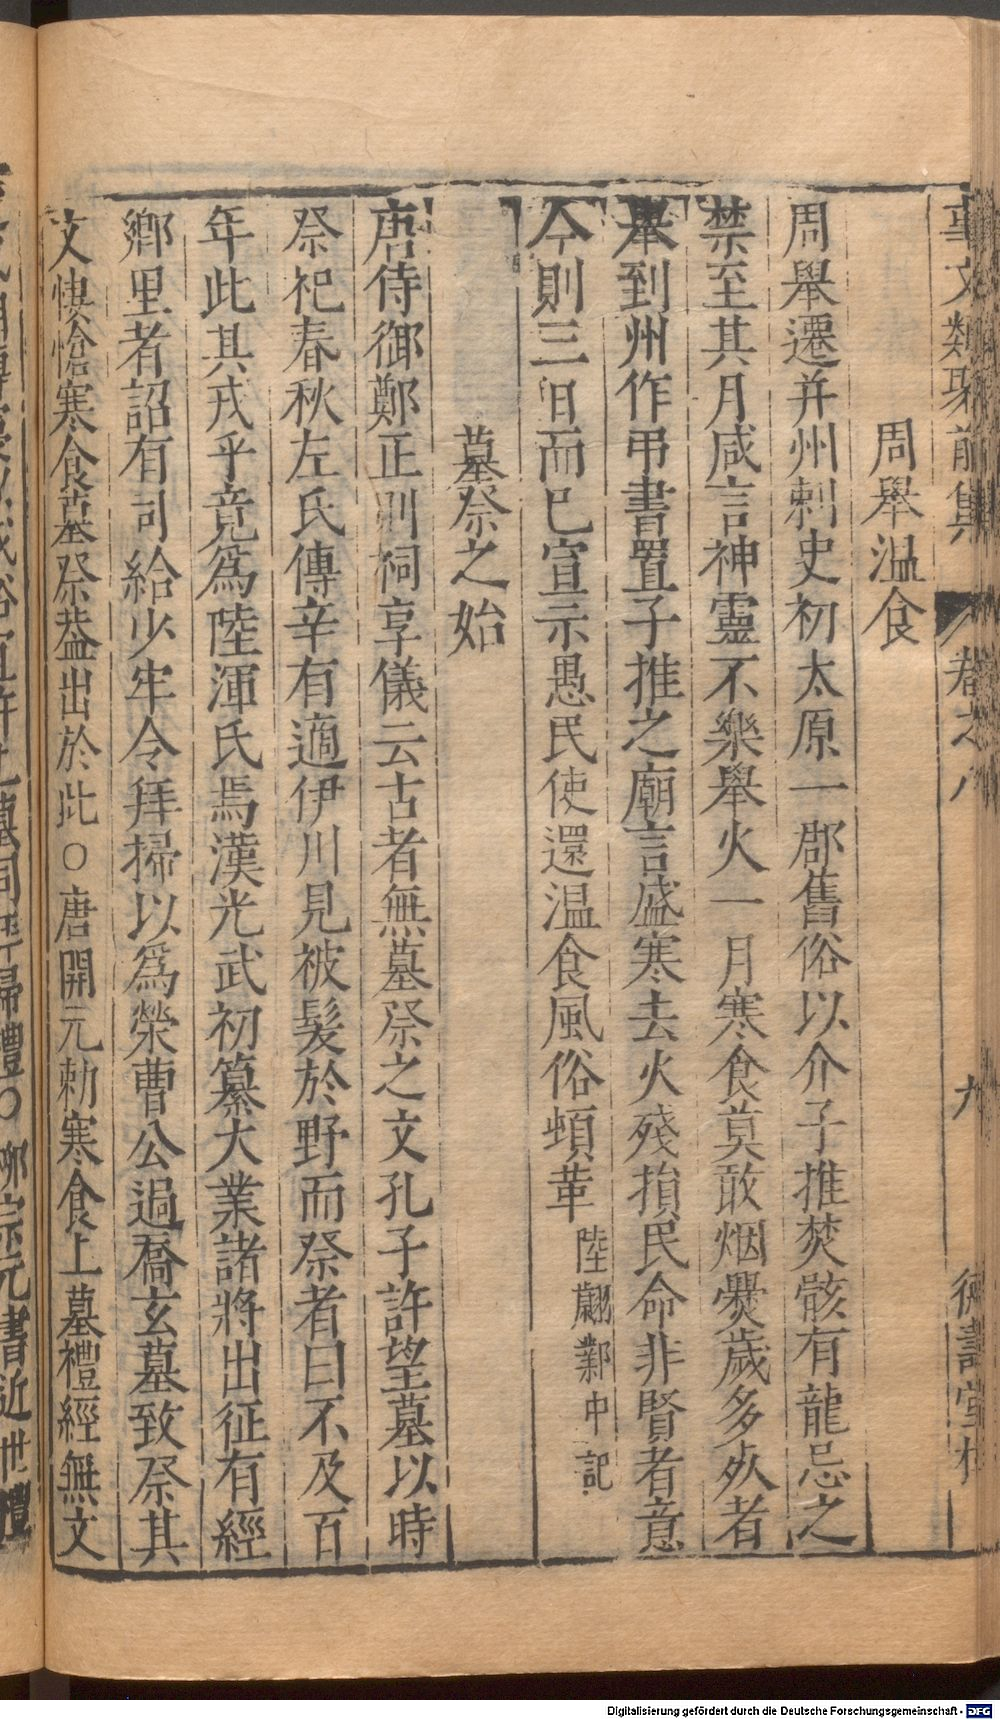 事文類聚前集 卷之八 九 德壽堂梓
周舉溫食
周舉遷并州刺史初太原一郡舊俗以介子推焚骸有龍忌之
禁至其月咸言神靈不樂舉火一月寒食莫敢烟爨歲多死者
舉到州作弔書置子推之廟言盛寒去火殘損民命非賢者意
今則三日而已宣示愚民使還溫食風俗頓革 陸翽鄴中記
墓祭之始
唐侍御鄭正則祠享儀云古者無墓祭之文孔子許望墓以時
祭祀春秋左氏傳辛有適伊川見被髮於野而祭者曰不及百
年此其戎乎竟為陸渾氏焉漢光武初纂大業諸將出征有經
鄉里者詔有司給少牢令拜掃以為榮曹公過喬玄墓致祭其
文悽愴寒食墓祭葢出於此○唐開元勅寒食上墓禮經無文
柳宗元書近世禮
Digitalisierung gefördert durch die Deutsche Forschungsgemeinschaft - DFG